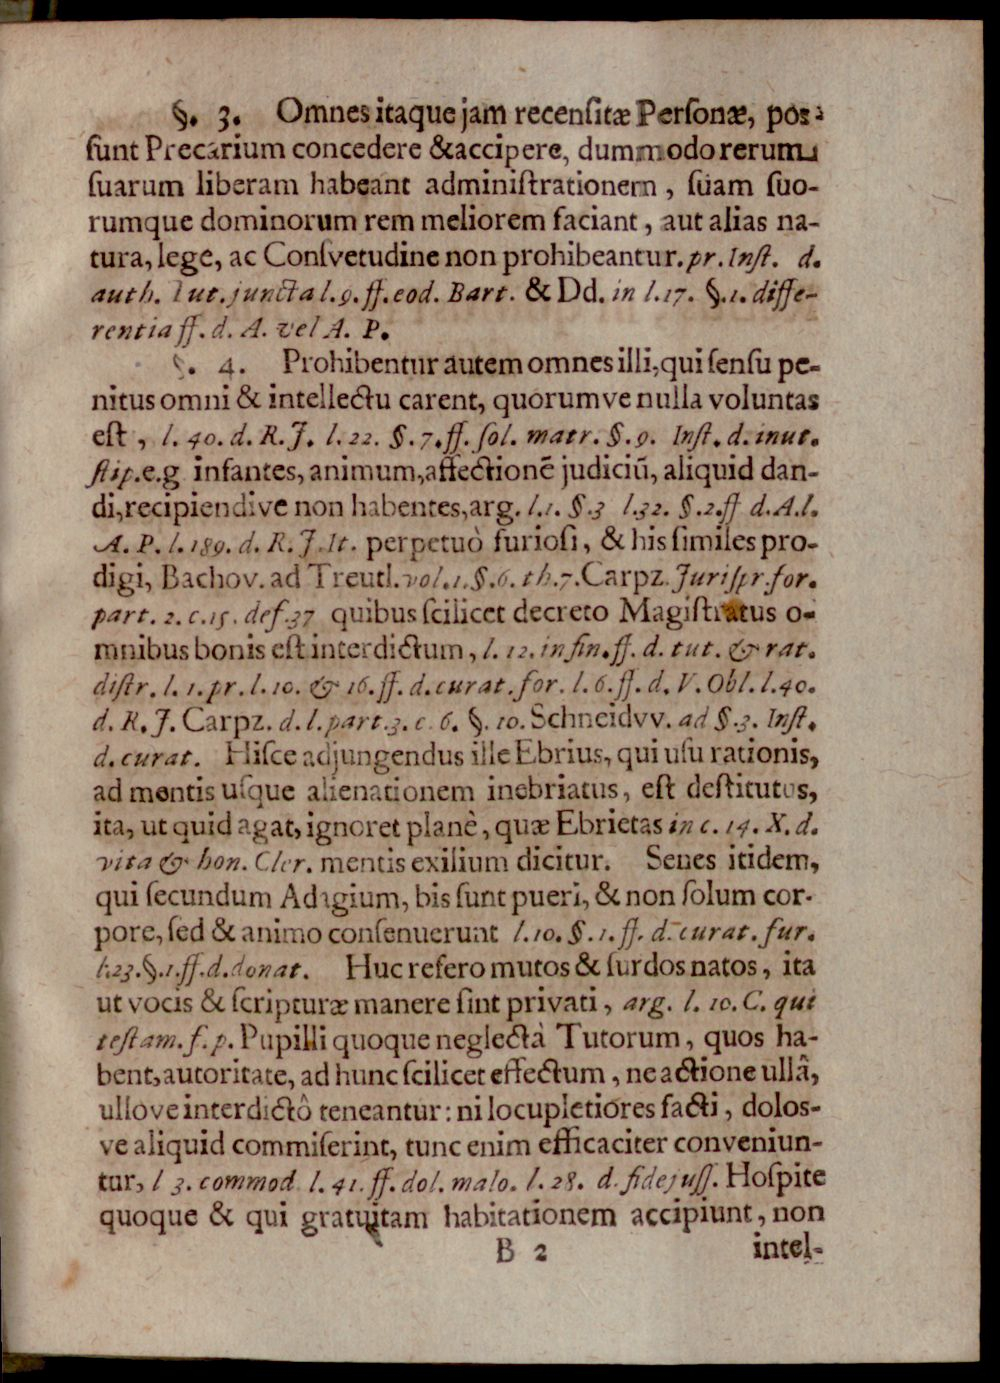 §. 3. Omnes itaque jam recensitæ Personæ, pos-
ſunt Precarium concedere & accipere, dummodo rerum
ſuarum liberam habeant adminiſtrationem, ſuam ſuo-
rumque dominorum rem meliorem faciant, aut alias na-
tura, lege, ac Conſvetudine non prohibeantur. pr. Inſt. d.
auth. Tut. juncta l. 9. ff. eod. Bart. & Dd. in l. 17. §. 1. diffe-
rentia ff. d. A. vel A. P.
§. 4. Prohibentur autem omnes illi, qui ſenſu pe-
nitus omni & intellectu carent, quorumve nulla voluntas
eſt, l. 40. d. R. J. l. 22. §. 7. ff. ſol. matr. §. 9. Inſt. d. inut.
ſtip. e.g infantes, animum, affectionē judiciū, aliquid dan-
di, recipiendive non habentes, arg. l. 1. §. 3 l. 32. §. 2. ff d. A. l.
A. P. l. 189. d. R. J. It. perpetuò furioſi, & his ſimiles pro-
digi, Bachov. ad Treutl. vol. 1. §. 6. th. 7. Carpz. Juriſpr. for.
part. 2. c. 15. def. 37 quibus ſcilicet decreto Magiſtratus o-
mnibus bonis eſt interdictum, l. 12. in fin. ff. d. tut. & rat.
diſtr. l. 1. pr. l. 10. & 16. ff. d. curat. for. l. 6. ff. d. V. Obl. l. 40.
d. R. J. Carpz. d. l. part. 3. c. 6. §. 10. Schneidvv. ad §. 3. Inſt.
d. curat. Hiſce adjungendus ille Ebrius, qui uſu rationis,
ad mentis uſque alienationem inebriatus, eſt deſtitutus,
ita, ut quid agat, ignoret planè, quæ Ebrietas in c. 14. X. d.
vita & hon. Cler. mentis exilium dicitur. Senes itidem,
qui ſecundum Adagium, bis ſunt pueri, & non ſolum cor-
pore, ſed & animo conſenuerunt l. 10. §. 1. ff. d. curat. fur.
l. 23. §. 1. ff. d. donat. Huc refero mutos & ſurdos natos, ita
ut vocis & ſcripturæ manere ſint privati, arg. l. 10. C. qui
teſtam. f. p. Pupilli quoque neglectâ Tutorum, quos ha-
bent, autoritate, ad hunc ſcilicet effectum, ne actione ullâ,
ullove interdictô teneantur: ni locupletiores facti, dolos-
ve aliquid commiſerint, tunc enim efficaciter conveniun-
tur, l 3. commod l. 41. ff. dol. malo. l. 28. d. fidejuſſ. Hoſpite
quoque & qui gratuitam habitationem accipiunt, non
B 2 intel-